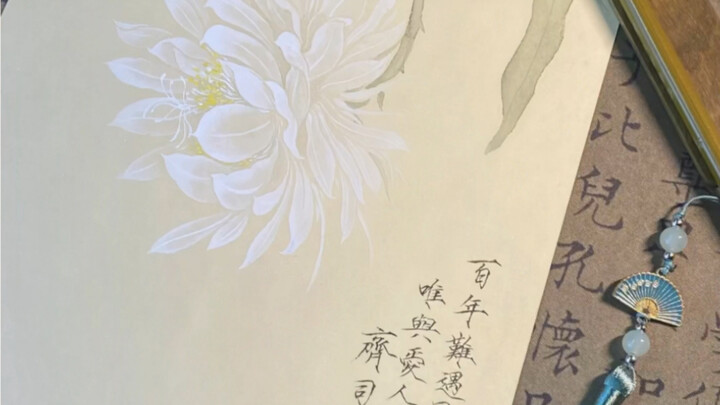 百年難遇
唯與愛人
齊司
比兒孔懷